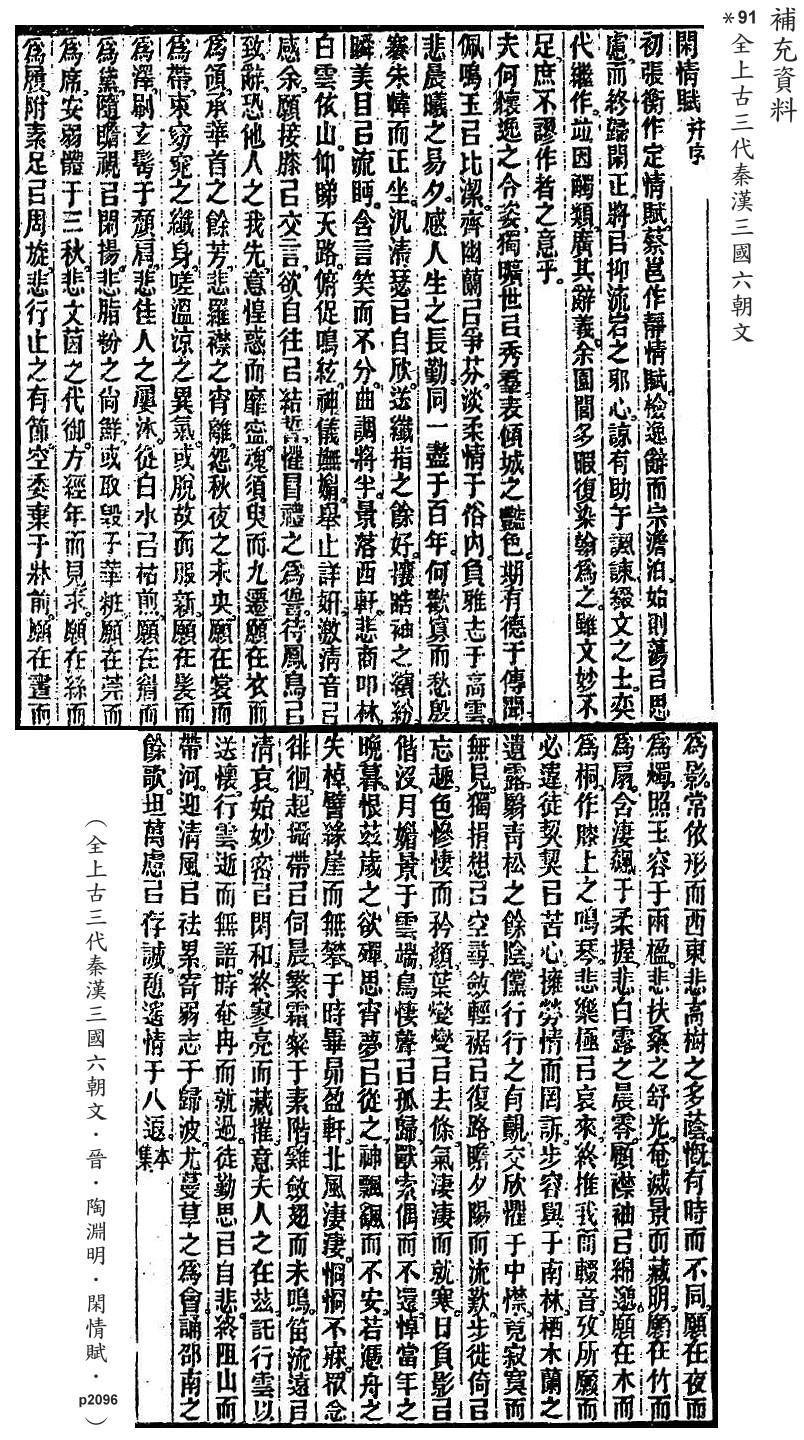 補充資料
＊91全上古三代秦漢三國六朝文
閑情賦 并序
初張衡作定情賦。蔡邕作靜情賦。檢逸辭而宗澹泊。始則蕩㠯思
慮。而終歸閑正。將㠯抑流宕之邪心。諒有助于諷諫。綴文之士。奕
代繼作。竝因觸類。廣其辭義。余園閭多暇。復染翰爲之。雖文妙不
足。庶不謬作者之意乎。
夫何㼖逸之令姿。獨曠世㠯秀羣。表傾城之豔色。期有德于傳聞。
佩鳴玉㠯比潔。齊幽蘭㠯爭芬。淡柔情于俗內。負雅志于高雲。
悲晨曦之易夕。感人生之長勤。同一盡于百年。何歡寡而愁殷。
褰朱幃而正坐。汎清瑟㠯自欣。送纖指之餘好。攘皓袖之繽紛。
瞬美目㠯流眄。含言笑而不分。曲調將半。景落西軒。悲商叩林。
白雲依山。仰睇天路。俯促鳴絃。神儀嫵媚。舉止詳妍。激清音㠯
感余。願接膝㠯交言。欲自往㠯結誓。懼冒禮之爲諐。待鳳鳥㠯
致辭。恐他人之我先。意惶惑而靡寍。魂須臾而九遷。願在衣而
爲領。承華首之餘芳。悲羅襟之宵離。怨秋夜之未央。願在裳而
爲帶。束窈窕之纖身。嗟溫涼之異氣。或脫故而服新。願在髮而
爲澤。刷玄鬢于頹肩。悲佳人之屢沐。從白水㠯枯煎。願在眉而
爲黛。隨瞻視㠯閑揚。悲脂粉之尚鮮。或取毀于華粧。願在莞而
爲席。安弱體于三秋。悲文茵之代御。方經年而見求。願在絲而
爲履。附素足㠯周旋。悲行止之有節。空委棄于牀前。願在晝而
爲影。常依形而西東。悲高樹之多蔭。慨有時而不同。願在夜而
爲燭。照玉容于兩楹。悲扶桑之舒光。奄滅景而藏明。願在竹而
爲扇。含淒飆于柔握。悲白露之晨零。願襟袖㠯緬邈。願在木而
爲桐。作膝上之鳴琴。悲樂極㠯哀來。終推我而輟音。攷所願而
必違。徒契契㠯苦心。擁勞情而罔訴。步容與于南林。栖木蘭之
遺露。翳青松之餘陰。儻行行之有覿。交欣懼于中襟。竟寂寞而
無見。獨捐想㠯空尋。斂輕裾㠯復路。瞻夕陽而流歎。步徙倚㠯
忘趣。色慘悽而矜顏。葉燮燮㠯去條。氣淒淒而就寒。日負影㠯
偕沒。月媚景于雲端。鳥悽聲㠯孤歸。獸索偶而不還。悼當年之
晚暮。恨茲歲之欲殫。思宵夢㠯從之。神飄颻而不安。若憑舟之
失棹。譬緣崖而無攀。于時畢昴盈軒。北風淒淒。惘惘不寐。眾念
徘徊。起攝帶㠯伺晨。繁霜粲于素階。雞斂翅而未鳴。笛流遠㠯
清哀。始妙密㠯閑和。終寥亮而藏摧。意夫人之在茲。託行雲以
送懷。行雲逝而無語。時奄冉而就過。徒勤思㠯自悲。終阻山而
帶河。迎清風㠯祛累。寄弱志于歸波。尤蔓草之爲會。誦邵南之
餘歌。坦萬慮㠯存誠。憩遙情于八遐。本集
（全上古三代秦漢三國六朝文．晉．陶淵明．閑情賦．p2096）